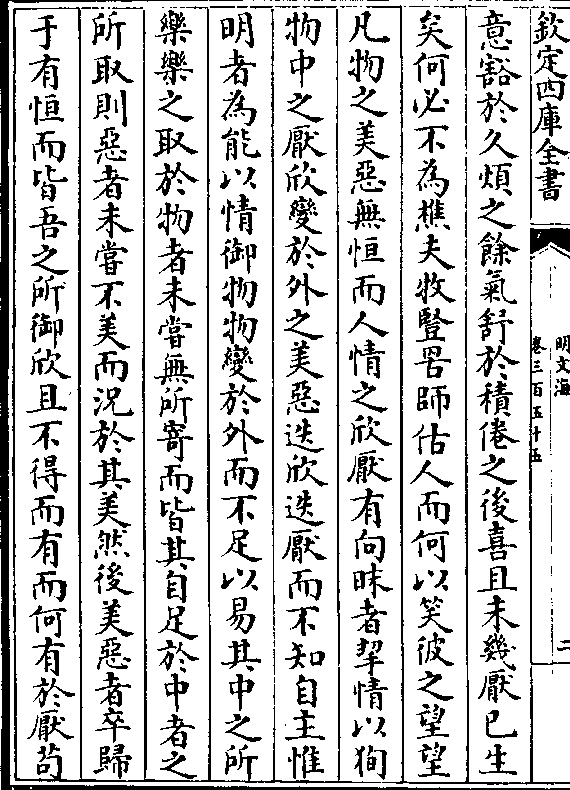 欽定四庫全書
明文海
卷三百五十五
二
意豁於久煩之餘氣舒於積倦之後喜且未幾厭已生
矣何必不為樵夫牧豎罟師估人而何以笑彼之望望
凡物之美惡無恒而人情之欣厭有向昧者挈情以狥
物中之厭欣變於外之美惡迭欣迭厭而不知自主惟
明者為能以情御物物變於外而不足以易其中之所
樂樂之取於物者未嘗無所寄而皆其自足於中者之
所取則惡者未嘗不美而況於其美然後美惡者卒歸
于有恒而皆吾之所御欣且不得而有而何有於厭苟